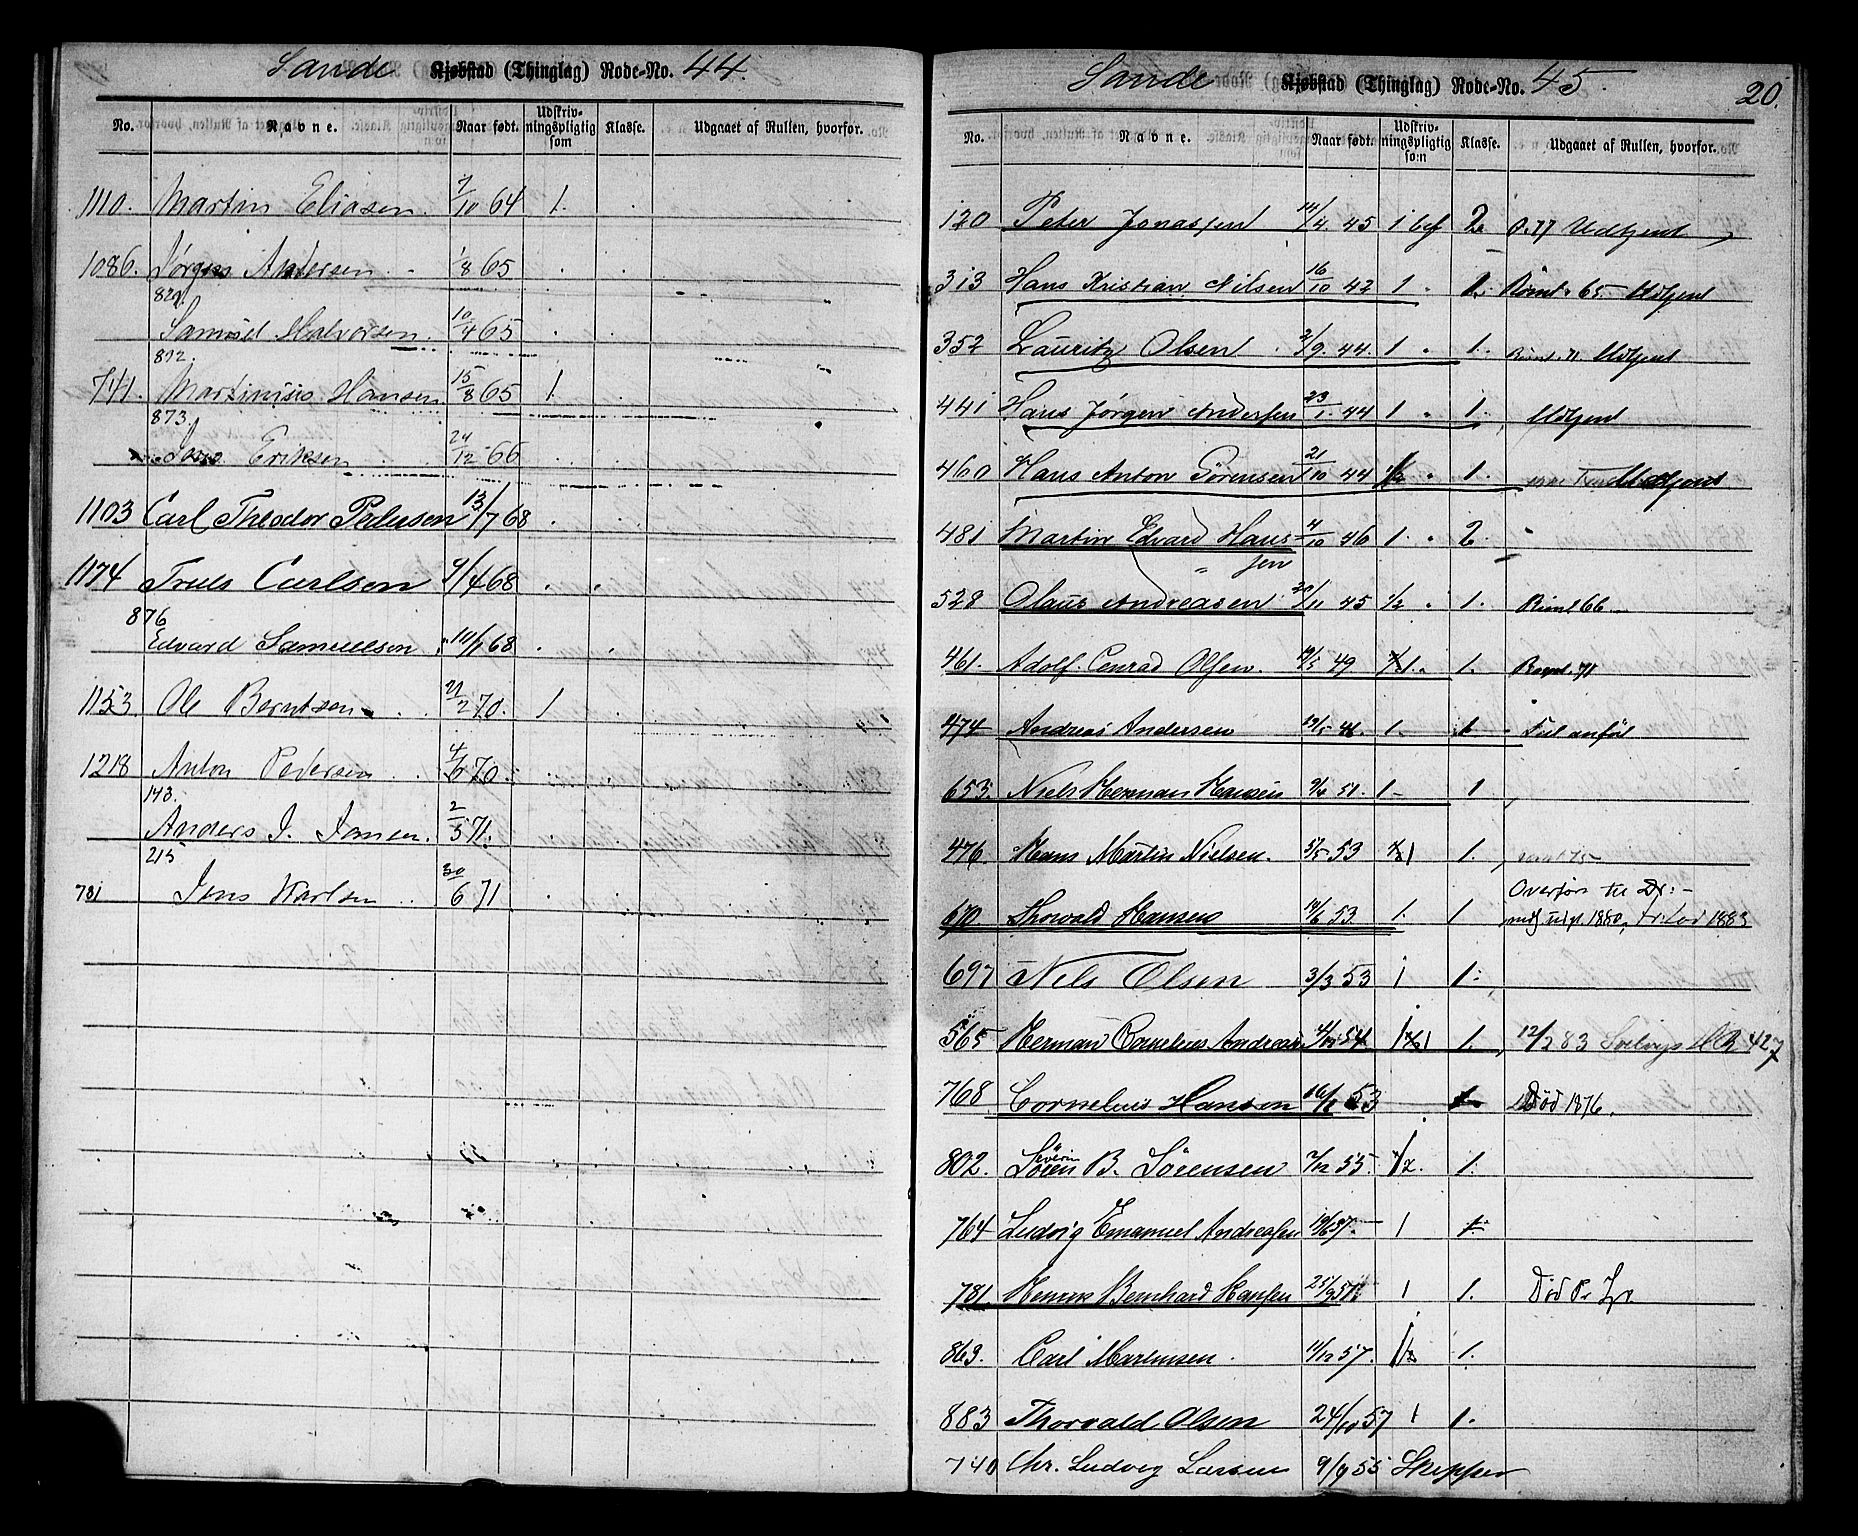 Sande Kjøbstad (Thinglag) Rode-No. 44.
No. Navne. Naar født. Udskriv-ningspligtig som Klasse. Udgaaet af Rullen, hvorfor.
1110. Martin Eliasen. 7/10 64 1.
1086. Jørgen Andersen 1/8 65
829.
Samuel Halvorsen. 10/4 65
892.
741. Martinius Hansen 15/8 65 1.
873.
Eriksen 24/12 66
1103 Carl Theodor Pedersen 13/7 68
1174 Truls Carlsen 9/4 68
876
Edvard Samuelsen 68
1153 Ole Berntsen 21/2 70. 1
1218 Anton Pedersen 4/6 70.
143.
Anders J. Jansen. 2/5 71.
215
781 Jens Karlsen 30/6 71
Sande Kjøbstad (Thinglag) Rode-No. 45. 20.
No. Navne. Naar født. Udskriv-ningspligtig som Klasse. Udgaaet af Rullen, hvorfor.
120 Peter Jonassen 14/4. 45 1 2 Udtjent
313 Hans Kristian Nilsen 16/10 42 1 1. Rømt 65 Udtjent
352 Lauritz Olsen 2/9. 44. 1 1. Rømt 71 Udtjent
441 Hans Jørgen Andersen 23/1. 44 1 1. Udtjent
460 Hans Anton Sørensen 21/10 44 1/2 1. Udtjent
481 Martin Edvard Hans 4/10 46 1. 2.
sen
528 Olaus Andreasen 20/11 45 1/2 1. Rømt 66
461. Adolf Conrad Olsen. 49. 1. 1. Rømt 71
474 Andreas Andersen 1. 1
653. Niels Herman Hansen 51. 1 1
476. Hans Martin Nielsen. 5/5 53 1 1.
670 Thorvald Hansen 53. 1. 1 Overført til Dr:
1880, 1883
697 Nils Olsen 3/3 53 1 1.
565 Herman Cornelius Andreas 54. 1 1. 12/2 83 427
768 Cornelius Hansen 53 1. Død 1876.
802. Søren Severin B. Sørensen 7/12 55. 1/2. 1.
764 Ludvig Emanuel Andreassen 57. 1 1.
781. Bernhard Hansen 25/9 1 1. Død
863. Carl Martinsen. 11/12 57. 1/2 1.
883 Thorvald Olsen 24/10 57 1 1.
740 Chr. Ludvig Larsen 9/9 55 Skipper